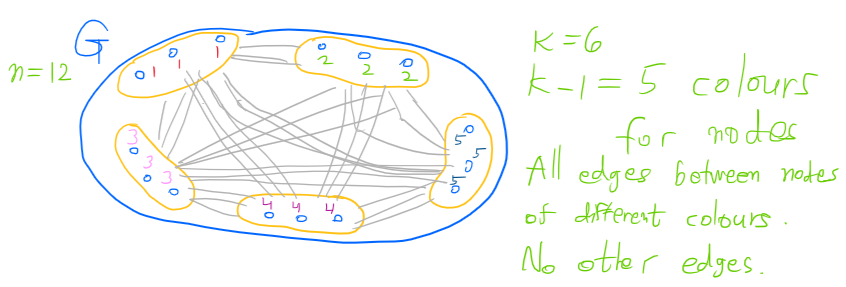 G
n=12
1 1 1
2 2 2
3
3
3
4 4 4
5 5
5
K=6
K-1=5 colours
for nodes
All edges between nodes
of different colours.
No other edges.